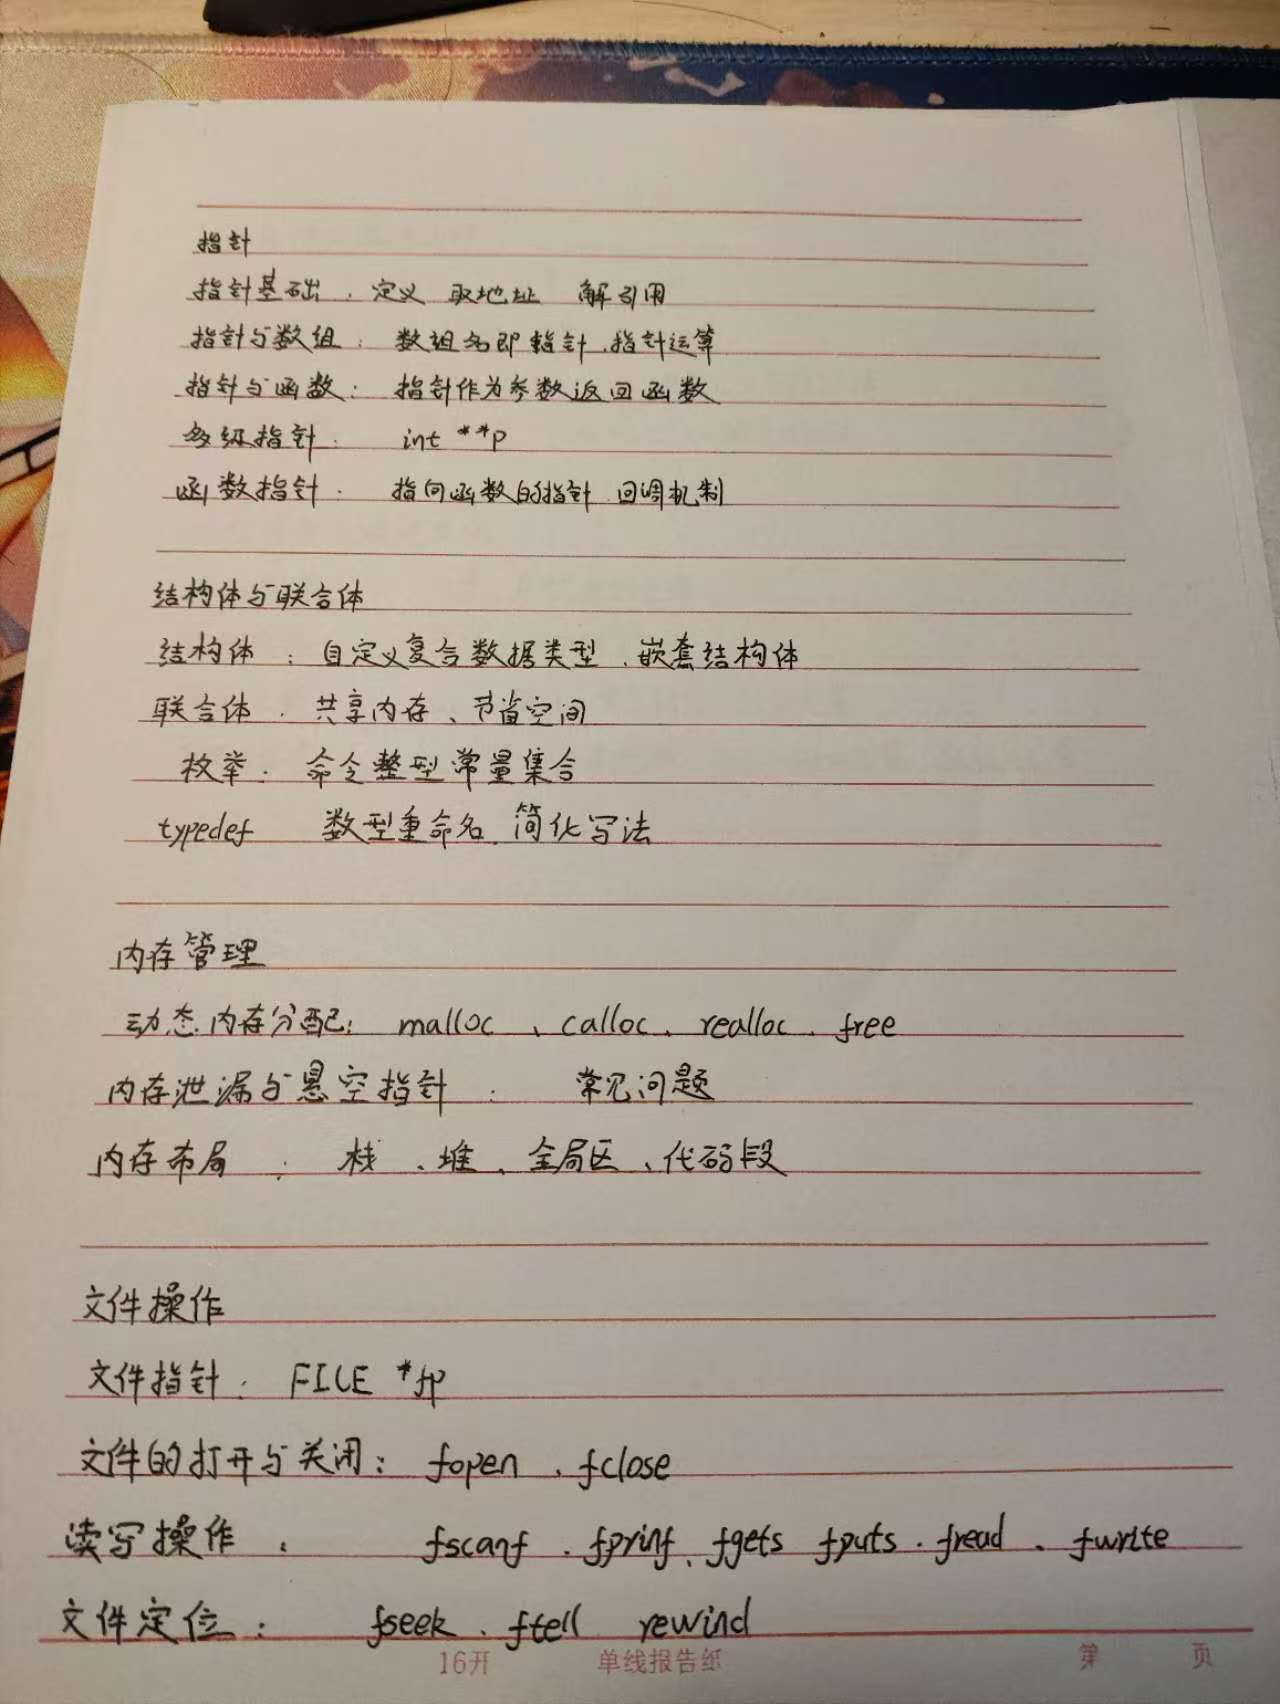 指针
指针基础：定义 取地址 解引用
指针与数组：数组名即指针、指针运算
指针与函数：指针作为参数返回函数
多级指针：int **p
函数指针：指向函数的指针、回调机制
结构体与联合体
结构体：自定义复合数据类型、嵌套结构体
联合体：共享内存、节省空间
枚举：命令整型常量集合
typedef 数型重命名、简化写法
内存管理
动态内存分配：malloc、calloc、realloc、free
内存泄漏与悬空指针：常见问题
内存布局：栈、堆、全局区、代码段
文件操作
文件指针：FILE *fp
文件的打开与关闭：fopen、fclose
读写操作：fscanf、fprinf、fgets fputs、fread、fwrite
文件定位：fseek、ftell rewind
16开 单线报告纸 第 页